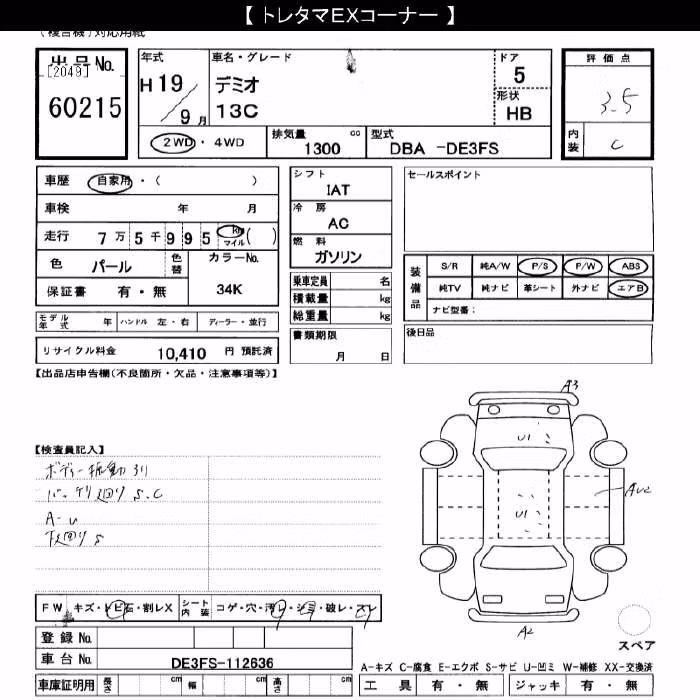 【 トレタマEXコーナー 】
(複合機)対応用紙
出品No.
[2049]
60215
年式
H 19 / 9 月
車名・グレード
デミオ
13C
ドア
5
形状
HB
評価点
3.5
内装
C
2WD・4WD
排気量 cc
1300
型式
DBA -DE3FS
車歴 自家用・( )
車検 年 月
走行 7万5千995 km マイル ( )
色 パール
色替
カラーNo.
34K
保証書 有・無
シフト
IAT
冷房
AC
燃料
ガソリン
乗車定員 名
積載量 kg
総重量 kg
セールスポイント
装備品
S/R 純A/W P/S P/W ABS
純TV 純ナビ 革シート 外ナビ エアB
ナビ型番:
モデル年式 年 ハンドル 左・右 ディーラー・並行
書類期限
月 日
後日品
リサイクル料金 10,410 円 預託済
【出品店申告欄(不良箇所・欠品・注意事項等)】
【検査員記入】
ボディー振動
S.C
A-U
下廻り S
A3
U1
U1
AU2
A2
FW キズ・トビ石・割レX
シート内装 コゲ・穴・汚レ・シミ・破レ・スレ
登録No.
車台No. DE3FS-112636
スペア
車庫証明用 長さ cm 幅 cm 高さ cm
A-キズ C-腐食 E-エクボ S-サビ U-凹ミ W-補修 XX-交換済
工具 有・無 ジャッキ 有・無